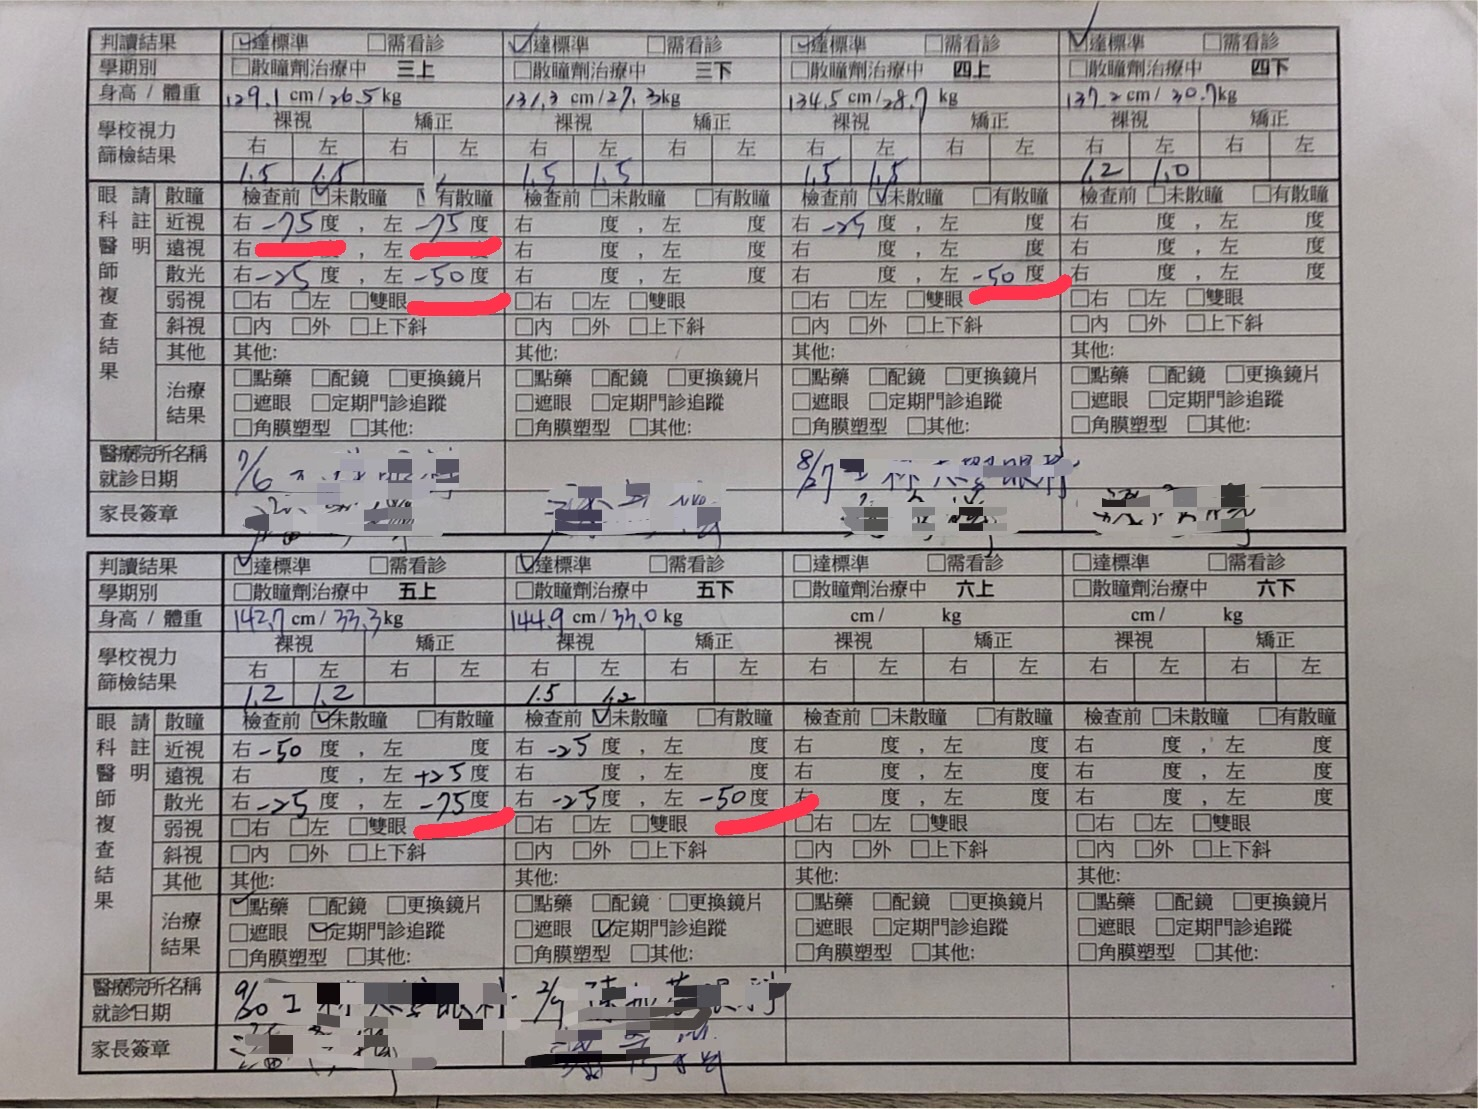 判讀結果 ☑達標準 ☐需看診 ☑達標準 ☐需看診 ☑達標準 ☐需看診 ☑達標準 ☐需看診
學期別 ☐散瞳劑治療中 三上 ☐散瞳劑治療中 三下 ☐散瞳劑治療中 四上 ☐散瞳劑治療中 四下
身高 / 體重 129.1 cm / 26.5 kg 131.3 cm / 27.3 kg 134.5 cm / 28.7 kg 137.2 cm / 30.7 kg
學校視力 裸視 矯正 裸視 矯正 裸視 矯正 裸視 矯正
篩檢結果 右 左 右 左 右 左 右 左 右 左 右 左 右 左 右 左
1.5 1.5 1.5 1.5 1.5 1.5 1.2 1.0
眼科醫師複查結果 請註明
散瞳 檢查前 ☑未散瞳 ☐有散瞳 檢查前 ☐未散瞳 ☐有散瞳 檢查前 ☑未散瞳 ☐有散瞳 檢查前 ☐未散瞳 ☐有散瞳
近視 右 -75 度 , 左 -75 度 右 度 , 左 度 右 -25 度 , 左 度 右 度 , 左 度
遠視 右 度 , 左 度 右 度 , 左 度 右 度 , 左 度 右 度 , 左 度
散光 右 -25 度 , 左 -50 度 右 度 , 左 度 右 度 , 左 -50 度 右 度 , 左 度
弱視 ☐右 ☐左 ☐雙眼 ☐右 ☐左 ☐雙眼 ☐右 ☐左 ☐雙眼 ☐右 ☐左 ☐雙眼
斜視 ☐內 ☐外 ☐上下斜 ☐內 ☐外 ☐上下斜 ☐內 ☐外 ☐上下斜 ☐內 ☐外 ☐上下斜
其他 其他: 其他: 其他: 其他:
治療結果 ☐點藥 ☐配鏡 ☐更換鏡片 ☐點藥 ☐配鏡 ☐更換鏡片 ☐點藥 ☐配鏡 ☐更換鏡片 ☐點藥 ☐配鏡 ☐更換鏡片
☐遮眼 ☐定期門診追蹤 ☐遮眼 ☐定期門診追蹤 ☐遮眼 ☐定期門診追蹤 ☐遮眼 ☐定期門診追蹤
☐角膜塑型 ☐其他: ☐角膜塑型 ☐其他: ☐角膜塑型 ☐其他: ☐角膜塑型 ☐其他:
醫療院所名稱
就診日期 7/6 8/27 眼科
家長簽章
判讀結果 ☑達標準 ☐需看診 ☑達標準 ☐需看診 ☐達標準 ☐需看診 ☐達標準 ☐需看診
學期別 ☐散瞳劑治療中 五上 ☐散瞳劑治療中 五下 ☐散瞳劑治療中 六上 ☐散瞳劑治療中 六下
身高 / 體重 142.7 cm / 33.3 kg 144.9 cm / 33.0 kg cm / kg cm / kg
學校視力 裸視 矯正 裸視 矯正 裸視 矯正 裸視 矯正
篩檢結果 右 左 右 左 右 左 右 左 右 左 右 左 右 左 右 左
1.2 1.2 1.5 1.2
眼科醫師複查結果 請註明
散瞳 檢查前 ☑未散瞳 ☐有散瞳 檢查前 ☑未散瞳 ☐有散瞳 檢查前 ☐未散瞳 ☐有散瞳 檢查前 ☐未散瞳 ☐有散瞳
近視 右 -50 度 , 左 度 右 -25 度 , 左 度 右 度 , 左 度 右 度 , 左 度
遠視 右 度 , 左 +25 度 右 度 , 左 度 右 度 , 左 度 右 度 , 左 度
散光 右 -25 度 , 左 -75 度 右 -25 度 , 左 -50 度 右 度 , 左 度 右 度 , 左 度
弱視 ☐右 ☐左 ☐雙眼 ☐右 ☐左 ☐雙眼 ☐右 ☐左 ☐雙眼 ☐右 ☐左 ☐雙眼
斜視 ☐內 ☐外 ☐上下斜 ☐內 ☐外 ☐上下斜 ☐內 ☐外 ☐上下斜 ☐內 ☐外 ☐上下斜
其他 其他: 其他: 其他: 其他:
治療結果 ☑點藥 ☐配鏡 ☐更換鏡片 ☐點藥 ☐配鏡 ☐更換鏡片 ☐點藥 ☐配鏡 ☐更換鏡片 ☐點藥 ☐配鏡 ☐更換鏡片
☐遮眼 ☑定期門診追蹤 ☐遮眼 ☑定期門診追蹤 ☐遮眼 ☐定期門診追蹤 ☐遮眼 ☐定期門診追蹤
☐角膜塑型 ☐其他: ☐角膜塑型 ☐其他: ☐角膜塑型 ☐其他: ☐角膜塑型 ☐其他:
醫療院所名稱
就診日期 9/30 眼科 2/9 眼科
家長簽章